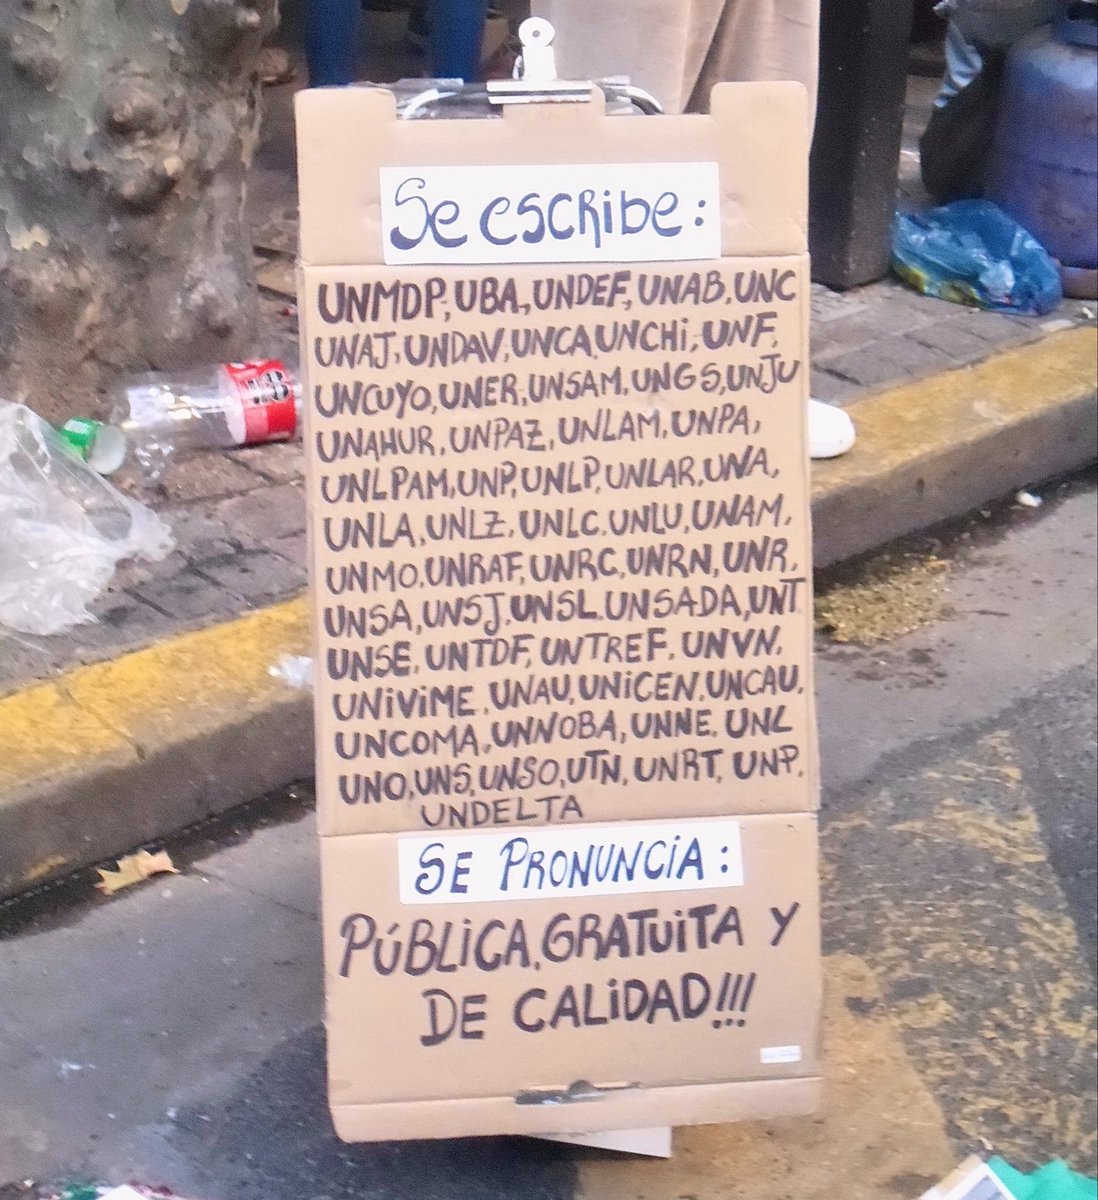 Se escribe:
UNMDP, UBA, UNDEF, UNAB, UNC
UNAJ, UNDAV, UNCA, UNCHi, UNF,
UNCUYO, UNER, UNSAM, UNGS, UNJU
UNAHUR, UNPAZ, UNLAM, UNPA,
UNLPAM, UNP, UNLP, UNLAR, UNA,
UNLA, UNLZ, UNLC, UNLU, UNAM,
UNMO, UNRAF, UNRC, UNRN, UNR,
UNSA, UNSJ, UNSL, UNSADA, UNT
UNSE, UNTDF, UNTREF, UNVN,
UNIVIME, UNAU, UNICEN, UNCAU,
UNCOMA, UNNOBA, UNNE, UNL
UNO, UNS, UNSO, UTN, UNRT, UNP,
UNDELTA
SE PRONUNCIA:
PÚBLICA, GRATUITA Y
DE CALIDAD!!!